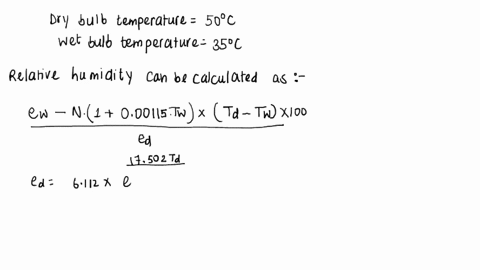 Dry bulb temperature = 50°C
Wet bulb temperature = 35°C
Relative humidity can be calculated as :-
ew - N.(1 + 0.00115.Tw) x (Td - Tw) x 100
ed
17.502 Td
ed = 6.112 x e